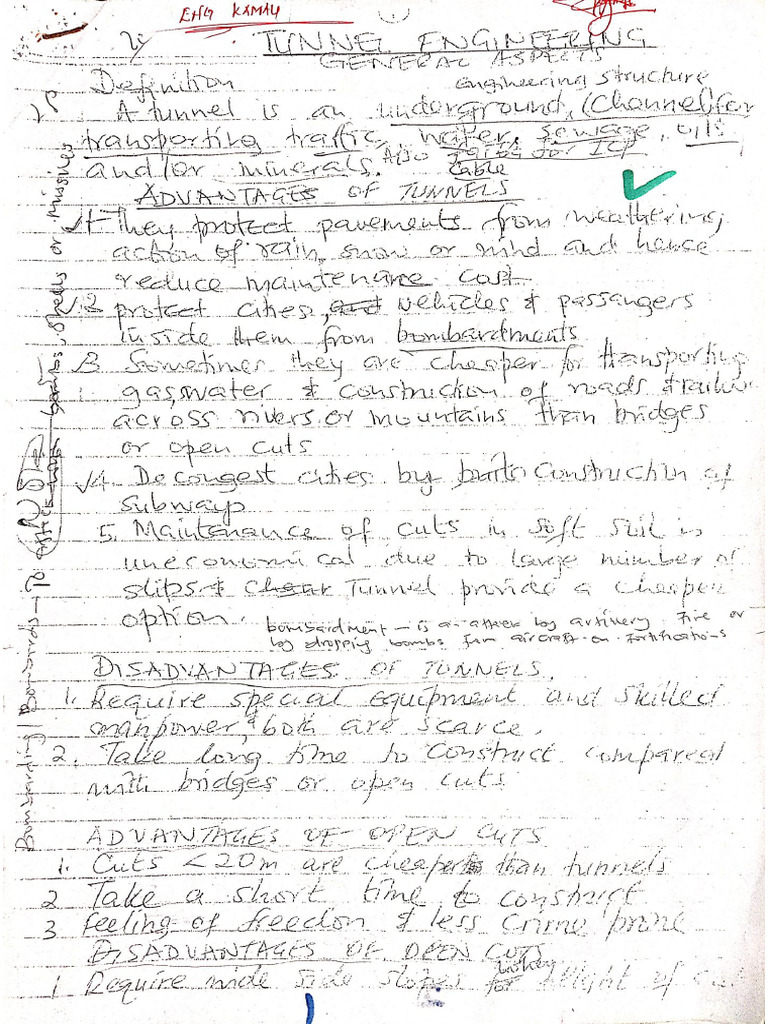 ENG KAMAU
TUNNEL ENGINEERING
GENERAL ASPECTS
Definition engineering structure
A tunnel is an underground, (Channel) for
transporting traffic, water, sewage, oils
and/or minerals. Also for ICT
cable
ADVANTAGES OF TUNNELS
1 They protect pavements from weathering,
action of rain, snow or wind and hence
reduce maintenance cost
2 protect cities, and vehicles & passangers
inside them from bombardments
3 Sometimes they are cheaper for transporting
gas, water & construction of roads & railway
across rivers or mountains than bridges
or open cuts
4. Decongest cities by construction of
subways
5. Maintenance of cuts in soft soil is
uneconomical due to large number of
slips & cheap Tunnel provide a cheaper
option.
bombardment - is an attack by artillery fire or
by dropping bombs from aircraft on fortifications
DISADVANTAGES OF TUNNELS.
1. Require special equipment and skilled
manpower, & both are scarce.
2. Take long time to construct compared
with bridges or open cuts
ADVANTAGES OF OPEN CUTS
1. Cuts < 20m are cheaper than tunnels
2 Take a short time to construct
3 Feeling of freedon & less crime prone
DISADVANTAGES OF OPEN CUTS
1 Require wide side slopes for height of cut
Bombarding/Bombards → To attack with bombs, shells or missiles